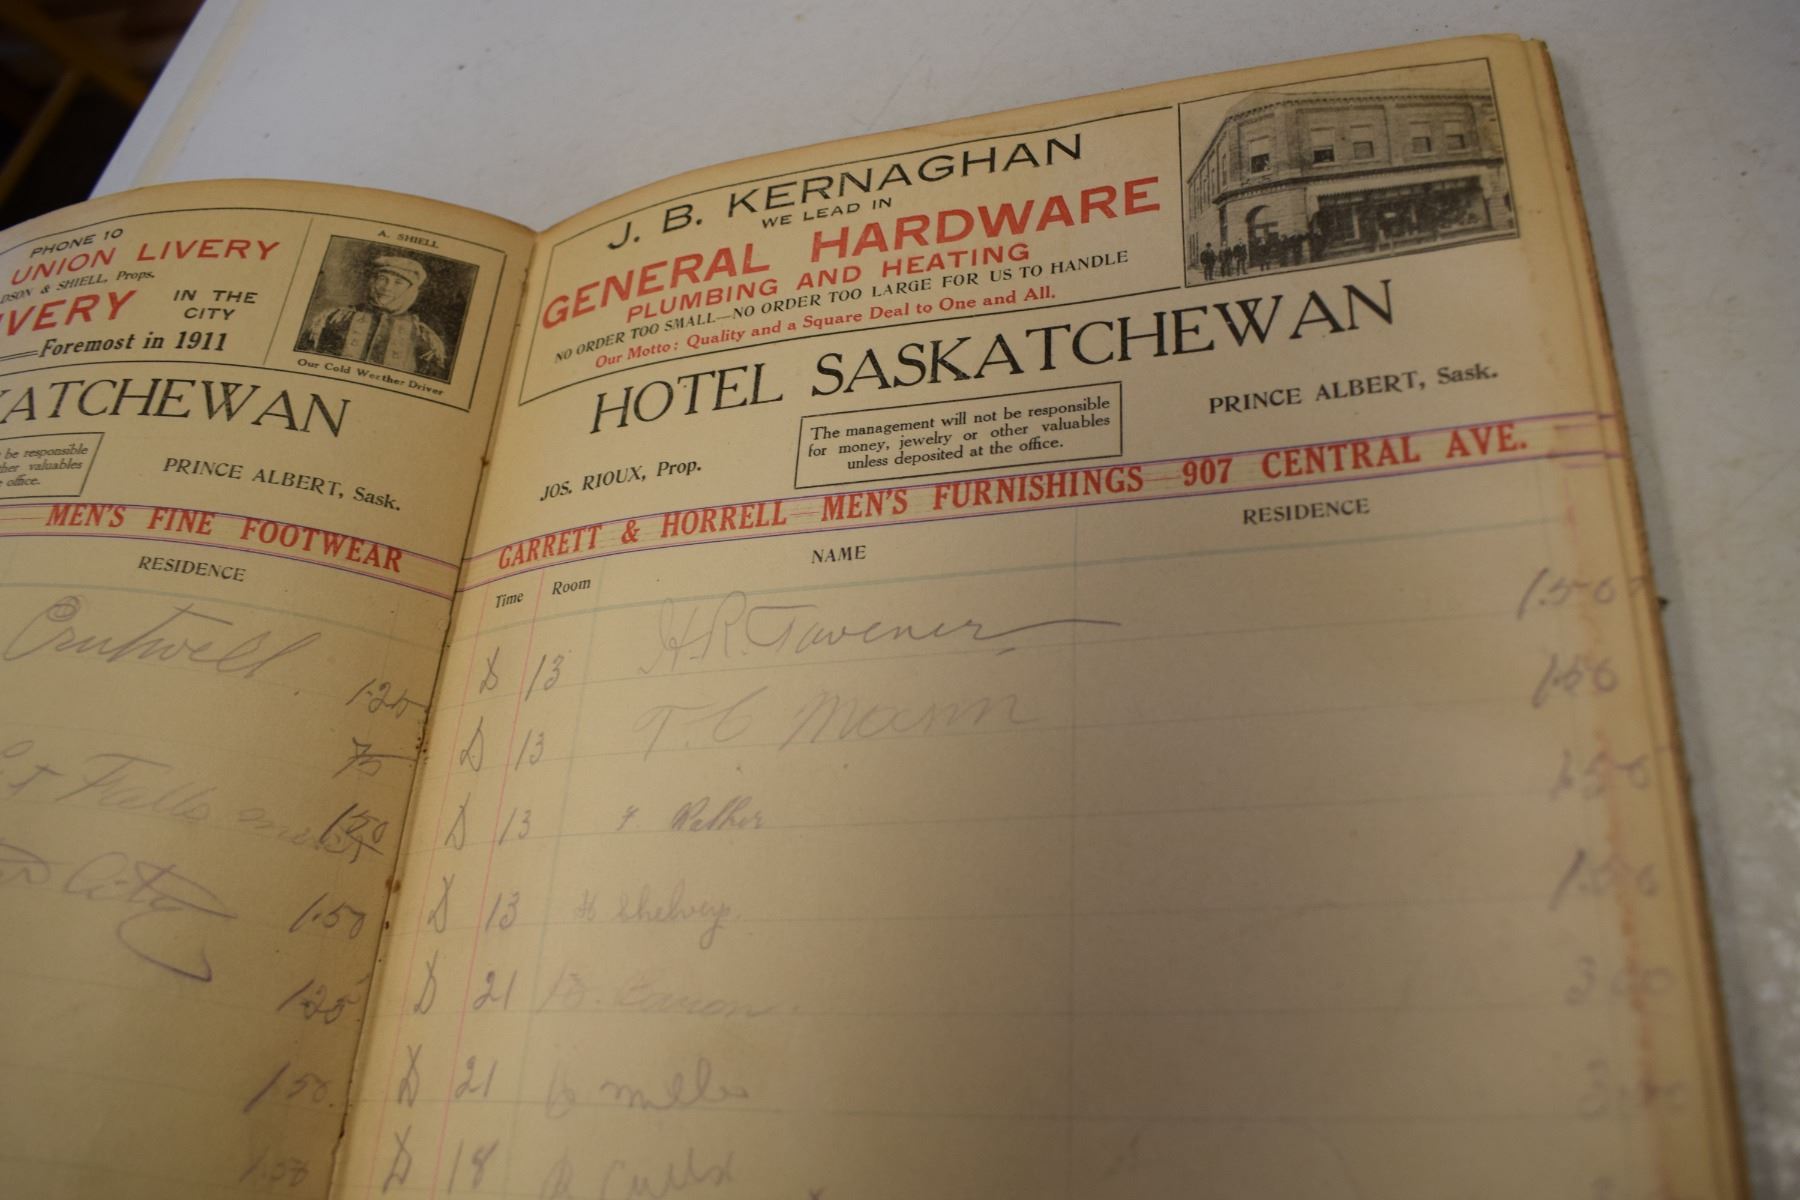 PHONE 10
UNION LIVERY
DSON & SHIELL, Props.
IVERY IN THE CITY
Foremost in 1911
A. SHIELL
Our Cold Weather Driver
KATCHEWAN
be responsible
ther valuables
office.
PRINCE ALBERT, Sask.
MEN'S FINE FOOTWEAR
RESIDENCE
Crutwell.
1.25
75
Falls
1.50
City
1.50
1.25
1.50
1.50
J. B. KERNAGHAN
WE LEAD IN
GENERAL HARDWARE
PLUMBING AND HEATING
NO ORDER TOO SMALL—NO ORDER TOO LARGE FOR US TO HANDLE
Our Motto: Quality and a Square Deal to One and All.
HOTEL SASKATCHEWAN
JOS. RIOUX, Prop.
The management will not be responsible
for money, jewelry or other valuables
unless deposited at the office.
PRINCE ALBERT, Sask.
GARRETT & HORRELL MEN'S FURNISHINGS 907 CENTRAL AVE.
Time Room NAME RESIDENCE
D 13 H.R. Tavener 1.50
D 13 T. C 1.50
D 13 1.50
D 13 H Shelvey. 1.50
D 21 B. Baron. 3.00
D 21 3.00
D 18